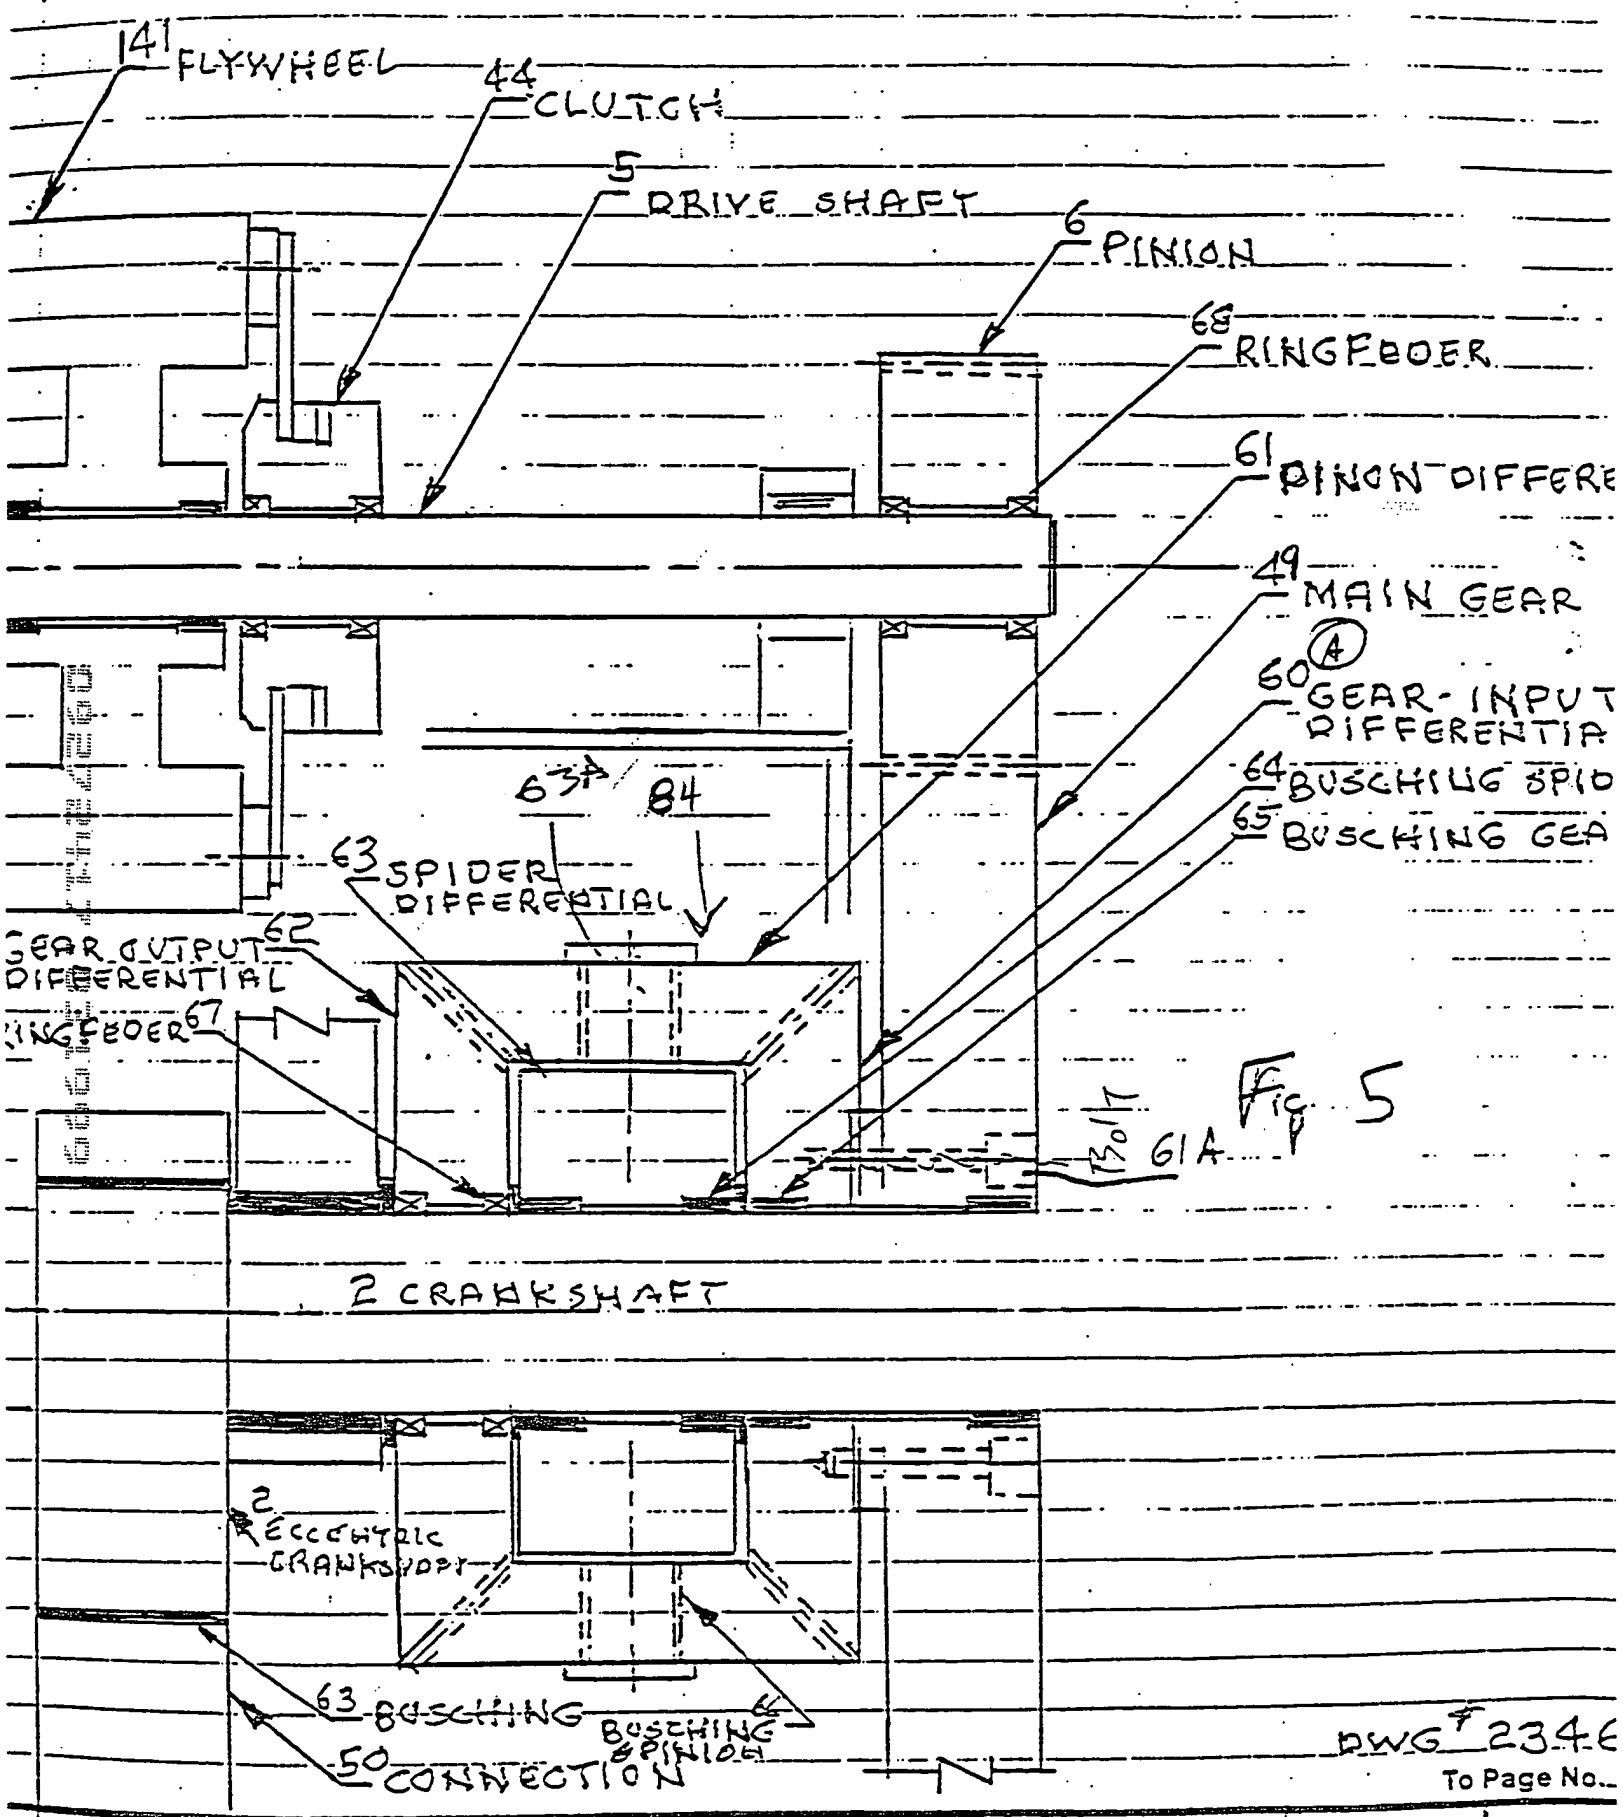 141 FLYWHEEL
44 CLUTCH
5 DRIVE SHAFT
6 PINION
68 RINGFEDER
61 PINON DIFFERE
49 MAIN GEAR
A
60 GEAR-INPUT
DIFFERENTIA
64 BUSCHING SPID
65 BUSCHING GEA
63A
84
63 SPIDER
DIFFERENTIAL
62
GEAR OUTPUT
DIFFERENTIAL
INGFEDER 67
Fig 5
Bolt
61A
2 CRANKSHAFT
2
ECCENTRIC
CRANKSHAFT
63 BUSCHING
BUSCHING
PINION
50 CONNECTION
DWG # 2346
To Page No.